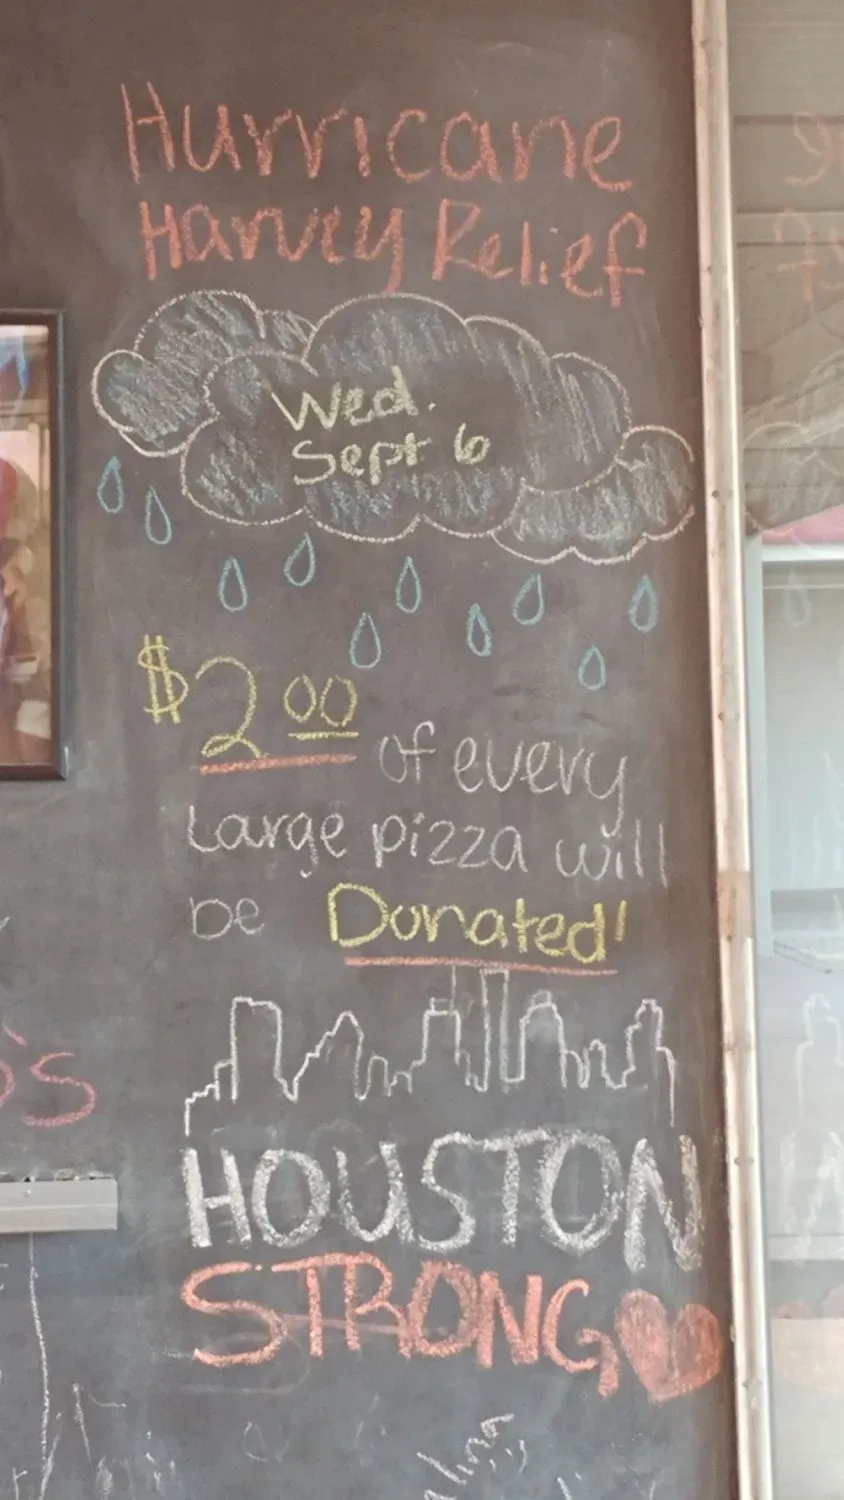 Hurricane
Harvey Relief
Wed.
Sept 6
$2.00 of every
Large pizza will
be Donated!
HOUSTON
STRONG
's